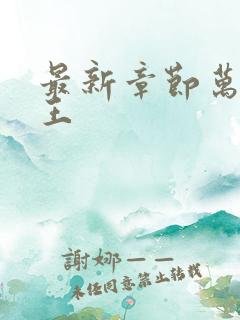 最新章節萬
王
謝娜——
未經同意禁止轉載